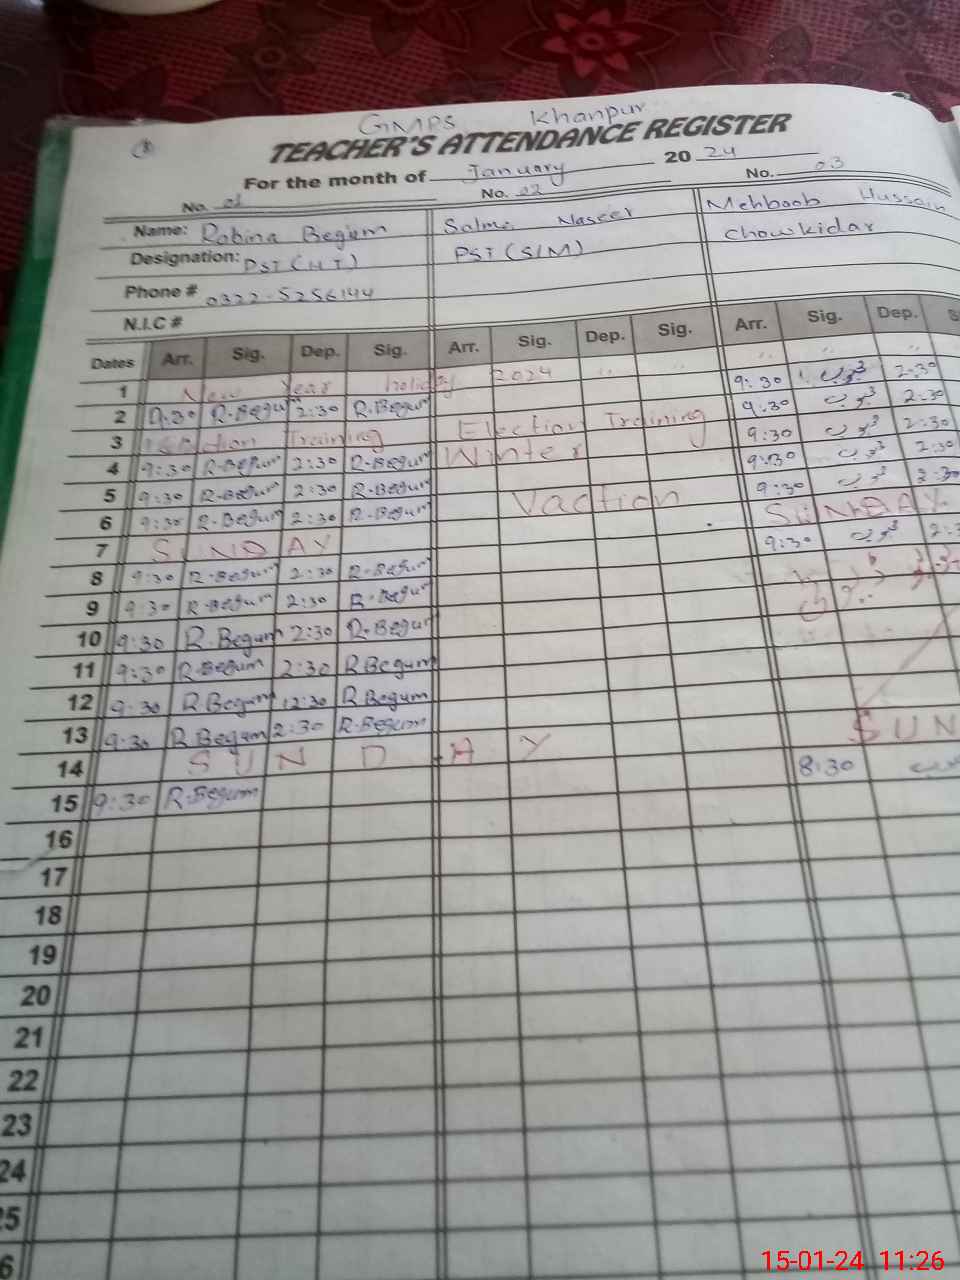 GMPS Khanpur
TEACHER'S ATTENDANCE REGISTER
For the month of January 20 24
No. 01 No. 02 No. 03
Name: Robina Begum Salma Naseer Mehboob Hussain
Designation: PST (HT) PST (SIM) Chowkidar
Phone # 0322-5256144
N.I.C #
Dates Arr. Sig. Dep. Sig. Arr. Sig. Dep. Sig. Arr. Sig. Dep. S
1 New Year holiday 2024 " " " " "
2 9:30 R.Begum 2:30 R.Begum 9:30 2:30
3 Election Training Election Training 9:30 2:30
4 9:30 R.Begum 2:30 R.Begum Winter 9:30 2:30
5 9:30 R.Begum 2:30 R.Begum 9:30 2:30
6 9:30 R.Begum 2:30 R.Begum Vaction 9:30 2:30
7 SUNDAY SUNDAY
8 9:30 R.Begum 2:30 R.Begum 9:30 2:3
9 9:30 R.Begum 2:30 R.Begum
10 9:30 R.Begum 2:30 R.Begum
11 9:30 R.Begum 2:30 R.Begum
12 9:30 R.Begum 12:30 R.Begum
13 9:30 R.Begum 2:30 R.Begum
14 SUNDAY SUN
15 9:30 R.Begum 8:30
16
17
18
19
20
21
22
23
24
25
6
15-01-24 11:26